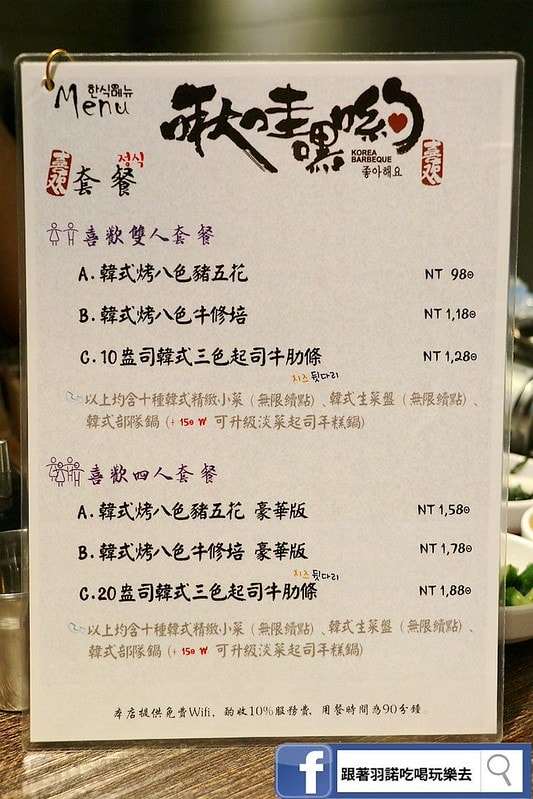 한식메뉴
Menu
啾哇嘿喲
KOREA
BARBEQUE
좋아해요
喜欢
喜欢
정식
套餐
喜歡雙人套餐
A.韓式烤八色豬五花 NT 980
B.韓式烤八色牛修培 NT 1,180
C.10盎司韓式三色起司牛肋條 NT 1,280
치즈 뒷다리
以上均含十種韓式精緻小菜(無限續點)、韓式生菜盤(無限續點)、
韓式部隊鍋(+150₩ 可升級淡菜起司年糕鍋)
喜歡四人套餐
A.韓式烤八色豬五花 豪華版 NT 1,580
B.韓式烤八色牛修培 豪華版 NT 1,780
치즈 뒷다리
C.20盎司韓式三色起司牛肋條 NT 1,880
以上均含十種韓式精緻小菜(無限續點)、韓式生菜盤(無限續點)、
韓式部隊鍋(+150₩ 可升級淡菜起司年糕鍋)
本店提供免費Wifi,酌收10%服務費,用餐時間為90分鐘。
f 跟著羽諾吃喝玩樂去